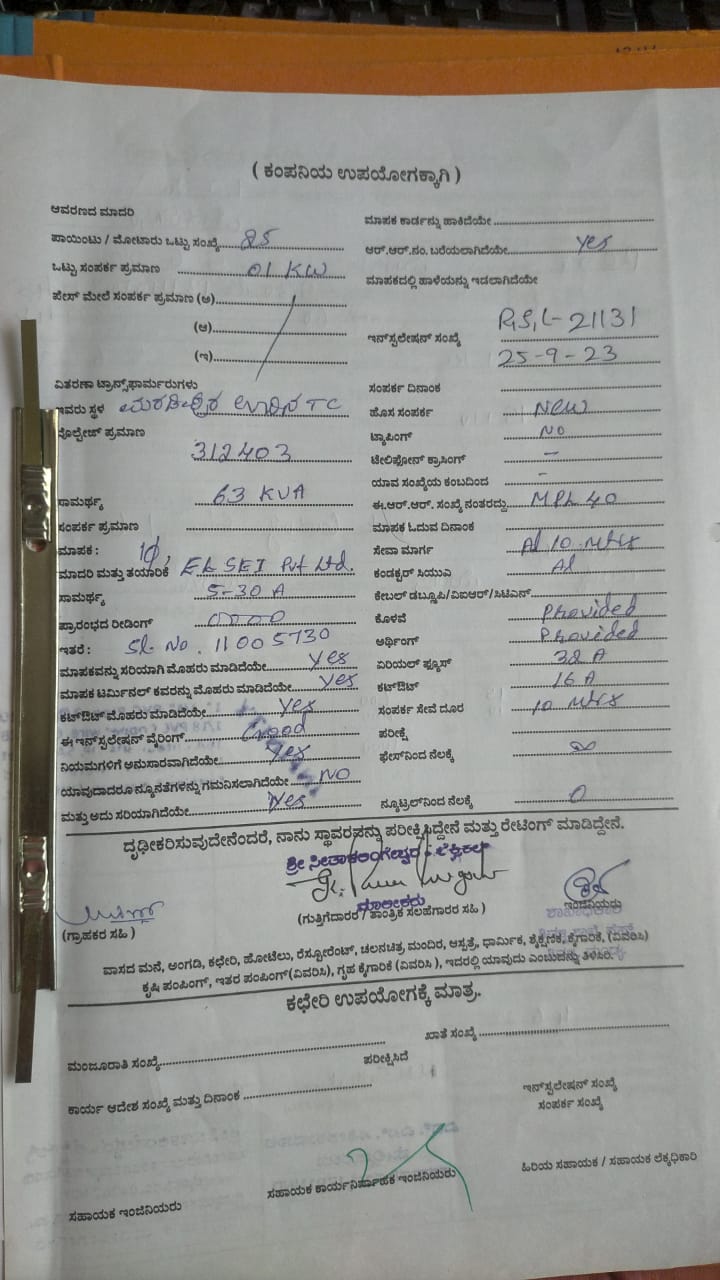 ( ಕಂಪನಿಯ ಉಪಯೋಗಕ್ಕಾಗಿ )
ಆವರಣದ ಮಾದರಿ
ಪಾಯಿಂಟು / ಮೋಟಾರು ಒಟ್ಟು ಸಂಖ್ಯೆ
ಒಟ್ಟು ಸಂಪರ್ಕ ಪ್ರಮಾಣ 01 KW
ಫೇಸ್ ಮೇಲೆ ಸಂಪರ್ಕ ಪ್ರಮಾಣ (ಅ)
(ಆ)
(ಇ)
ವಿತರಣಾ ಟ್ರಾನ್ಸ್‌ಫಾರ್ಮರುಗಳು
ಇವರು ಸ್ಥಳ TC
ವೋಲ್ಟೇಜ್ ಪ್ರಮಾಣ
312403
ಸಾಮರ್ಥ್ಯ 63 KVA
ಸಂಪರ್ಕ ಪ್ರಮಾಣ
ಮಾಪಕ : 1φ,
ಮಾದರಿ ಮತ್ತು ತಯಾರಿಕೆ Pvt Ltd.
ಸಾಮರ್ಥ್ಯ 5-30 A
ಪ್ರಾರಂಭದ ರೀಡಿಂಗ್ 0000
ಇತರೆ : Sl. No. 11005730
ಮಾಪಕವನ್ನು ಸರಿಯಾಗಿ ಮೊಹರು ಮಾಡಿದೆಯೇ yes
ಮಾಪಕ ಟರ್ಮಿನಲ್ ಕವರನ್ನು ಮೊಹರು ಮಾಡಿದೆಯೇ yes
ಕಟ್‌ಔಟ್ ಮೊಹರು ಮಾಡಿದೆಯೇ yes
ಈ ಇನ್‌ಸ್ಟಲೇಷನ್ ವೈರಿಂಗ್ Good
ನಿಯಮಗಳಿಗೆ ಅನುಸಾರವಾಗಿದೆಯೇ Yes
ಯಾವುದಾದರೂ ನ್ಯೂನತೆಗಳನ್ನು ಗಮನಿಸಲಾಗಿದೆಯೇ NO
ಮತ್ತು ಅದು ಸರಿಯಾಗಿದೆಯೇ Yes
ಮಾಪಕ ಕಾರ್ಡನ್ನು ಹಾಕಿದೆಯೇ
ಆರ್.ಆರ್.ನಂ. ಬರೆಯಲಾಗಿದೆಯೇ yes
ಮಾಪಕದಲ್ಲಿ ಹಾಳೆಯನ್ನು ಇಡಲಾಗಿದೆಯೇ
ಇನ್‌ಸ್ಟಲೇಷನ್ ಸಂಖ್ಯೆ 21131
25-9-23
ಸಂಪರ್ಕ ದಿನಾಂಕ
ಹೊಸ ಸಂಪರ್ಕ New
ಟ್ಯಾಪಿಂಗ್ NO
ಟೆಲಿಫೋನ್ ಕ್ರಾಸಿಂಗ್ -
ಯಾವ ಸಂಖ್ಯೆಯ ಕಂಬದಿಂದ -
ಈ.ಆರ್.ಆರ್. ಸಂಖ್ಯೆ ನಂತರದ್ದು MPL 40
ಮಾಪಕ ಓದುವ ದಿನಾಂಕ
ಸೇವಾ ಮಾರ್ಗ Al 10 Mtrs
ಕಂಡಕ್ಟರ್ ಸಿಯುಎ Al
ಕೇಬಲ್ ಡಬ್ಲ್ಯೂಪಿ/ವಿಐಆರ್/ಸಿಟಿಎಸ್
ಕೊಳವೆ Provided
ಅರ್ಥಿಂಗ್ Provided
ಏರಿಯಲ್ ಫ್ಯೂಸ್ 32 A
ಕಟ್‌ಔಟ್ 16 A
ಸಂಪರ್ಕ ಸೇವೆ ದೂರ 10 Mtrs
ಪರೀಕ್ಷೆ
ಫೇಸ್‌ನಿಂದ ನೆಲಕ್ಕೆ ∞
ನ್ಯೂಟ್ರಲ್‌ನಿಂದ ನೆಲಕ್ಕೆ 0
ದೃಢೀಕರಿಸುವುದೇನೆಂದರೆ, ನಾನು ಸ್ಥಾವರವನ್ನು ಪರೀಕ್ಷಿಸಿದ್ದೇನೆ ಮತ್ತು ರೇಟಿಂಗ್ ಮಾಡಿದ್ದೇನೆ.
ಮಾಲೀಕರು
(ಗ್ರಾಹಕರ ಸಹಿ )
(ಗುತ್ತಿಗೆದಾರರ / ತಾಂತ್ರಿಕ ಸಲಹೆಗಾರರ ಸಹಿ )
ಇಂಜಿನಿಯರು
ಶಾಖಾಧಿಕಾರಿ
ವಾಸದ ಮನೆ, ಅಂಗಡಿ, ಕಛೇರಿ, ಹೋಟೆಲು, ರೆಸ್ಟೋರೆಂಟ್, ಚಲನಚಿತ್ರ ಮಂದಿರ, ಆಸ್ಪತ್ರೆ, ಧಾರ್ಮಿಕ, ಶೈಕ್ಷಣಿಕ, ಕೈಗಾರಿಕೆ, (ವಿವರಿಸಿ)
ಕೃಷಿ ಪಂಪಿಂಗ್, ಇತರ ಪಂಪಿಂಗ್(ವಿವರಿಸಿ), ಗೃಹ ಕೈಗಾರಿಕೆ (ವಿವರಿಸಿ ), ಇದರಲ್ಲಿ ಯಾವುದು ಎಂಬುದನ್ನು ತಿಳಿಸಿರಿ.
ಕಛೇರಿ ಉಪಯೋಗಕ್ಕೆ ಮಾತ್ರ.
ಮಂಜೂರಾತಿ ಸಂಖ್ಯೆ
ಪರೀಕ್ಷಿಸಿದೆ
ಖಾತೆ ಸಂಖ್ಯೆ
ಕಾರ್ಯ ಆದೇಶ ಸಂಖ್ಯೆ ಮತ್ತು ದಿನಾಂಕ
ಇನ್‌ಸ್ಟಲೇಷನ್ ಸಂಖ್ಯೆ
ಸಂಪರ್ಕ ಸಂಖ್ಯೆ
ಸಹಾಯಕ ಇಂಜಿನಿಯರು
ಸಹಾಯಕ ಕಾರ್ಯನಿರ್ವಾಹಕ ಇಂಜಿನಿಯರು
ಹಿರಿಯ ಸಹಾಯಕ / ಸಹಾಯಕ ಲೆಕ್ಕಧಿಕಾರಿ